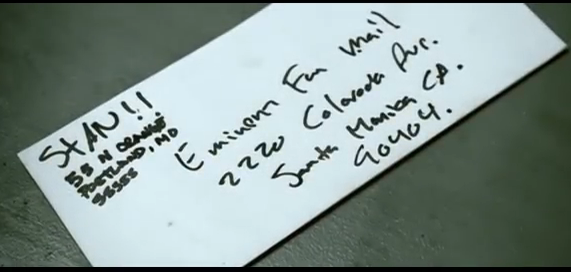 STAN!!
55 N ORANGE
PORTLAND, MD
56555
Eminem Fan Mail
2220 Colorado Ave.
Santa Monica CA.
90404.